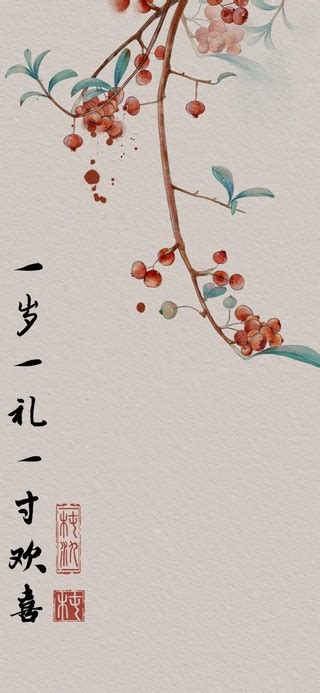 一岁一礼一寸欢喜